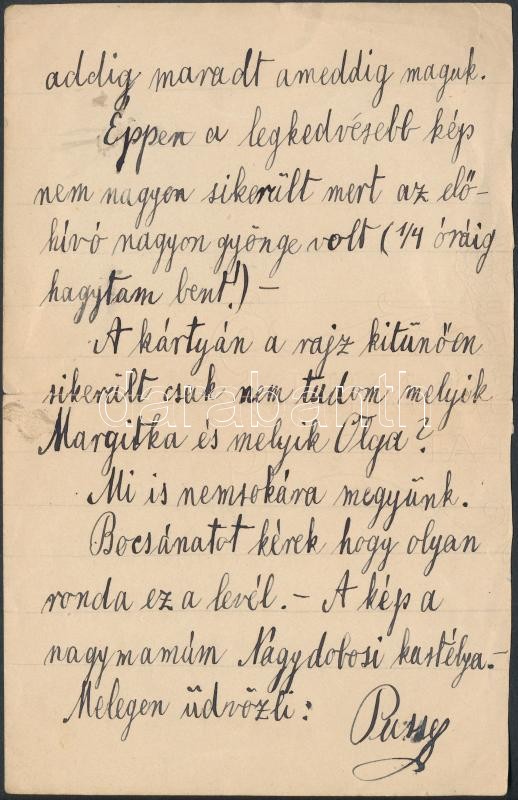 addig maradt ameddig maguk.
Éppen a legkedvésebb kép
nem nagyon sikerült mert az elő-
hívó nagyon gyönge volt (1/4 óráig
hagytam bent!) –
A kártyán a rajz kitünően
sikerült csak nem tudom melyik
darabanth
Margitka és melyik Olga?
Mi is nemsokára megyünk.
Bocsánatot kérek hogy olyan
ronda ez a levél. – A kép a
nagymamám Nagydobosi kastélya. –
Melegen üdvözli: